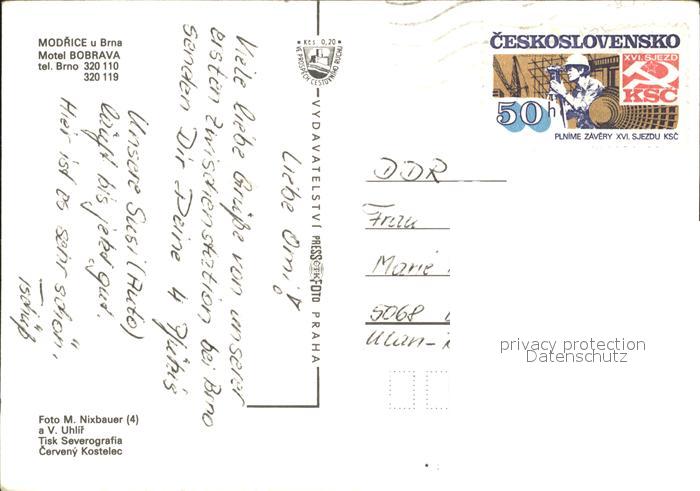 MODŘICE u Brna
Motel BOBRAVA
tel. Brno 320 110
320 119
Kčs 0,20
VE PROSPĚCH CESTOVNÍHO RUCHU
ČESKOSLOVENSKO
XVI. SJEZD
KSČ
50h
PLNÍME ZÁVĚRY XVI. SJEZDU KSČ
VYDAVATELSTVÍ PRESSFOTO PRAHA
Liebe Omi!
Viele liebe Grüße von unserer
ersten Zwischenstation bei Brno
senden Dir Deine 4
Unsere Susi (Auto)
läuft bis jetzt gut.
Hier ist es sehr schön.
Tschüß
DDR
Frau
Marie
5068
privacy protection
Datenschutz
Foto M. Nixbauer (4)
a V. Uhlíř
Tisk Severografia
Červený Kostelec